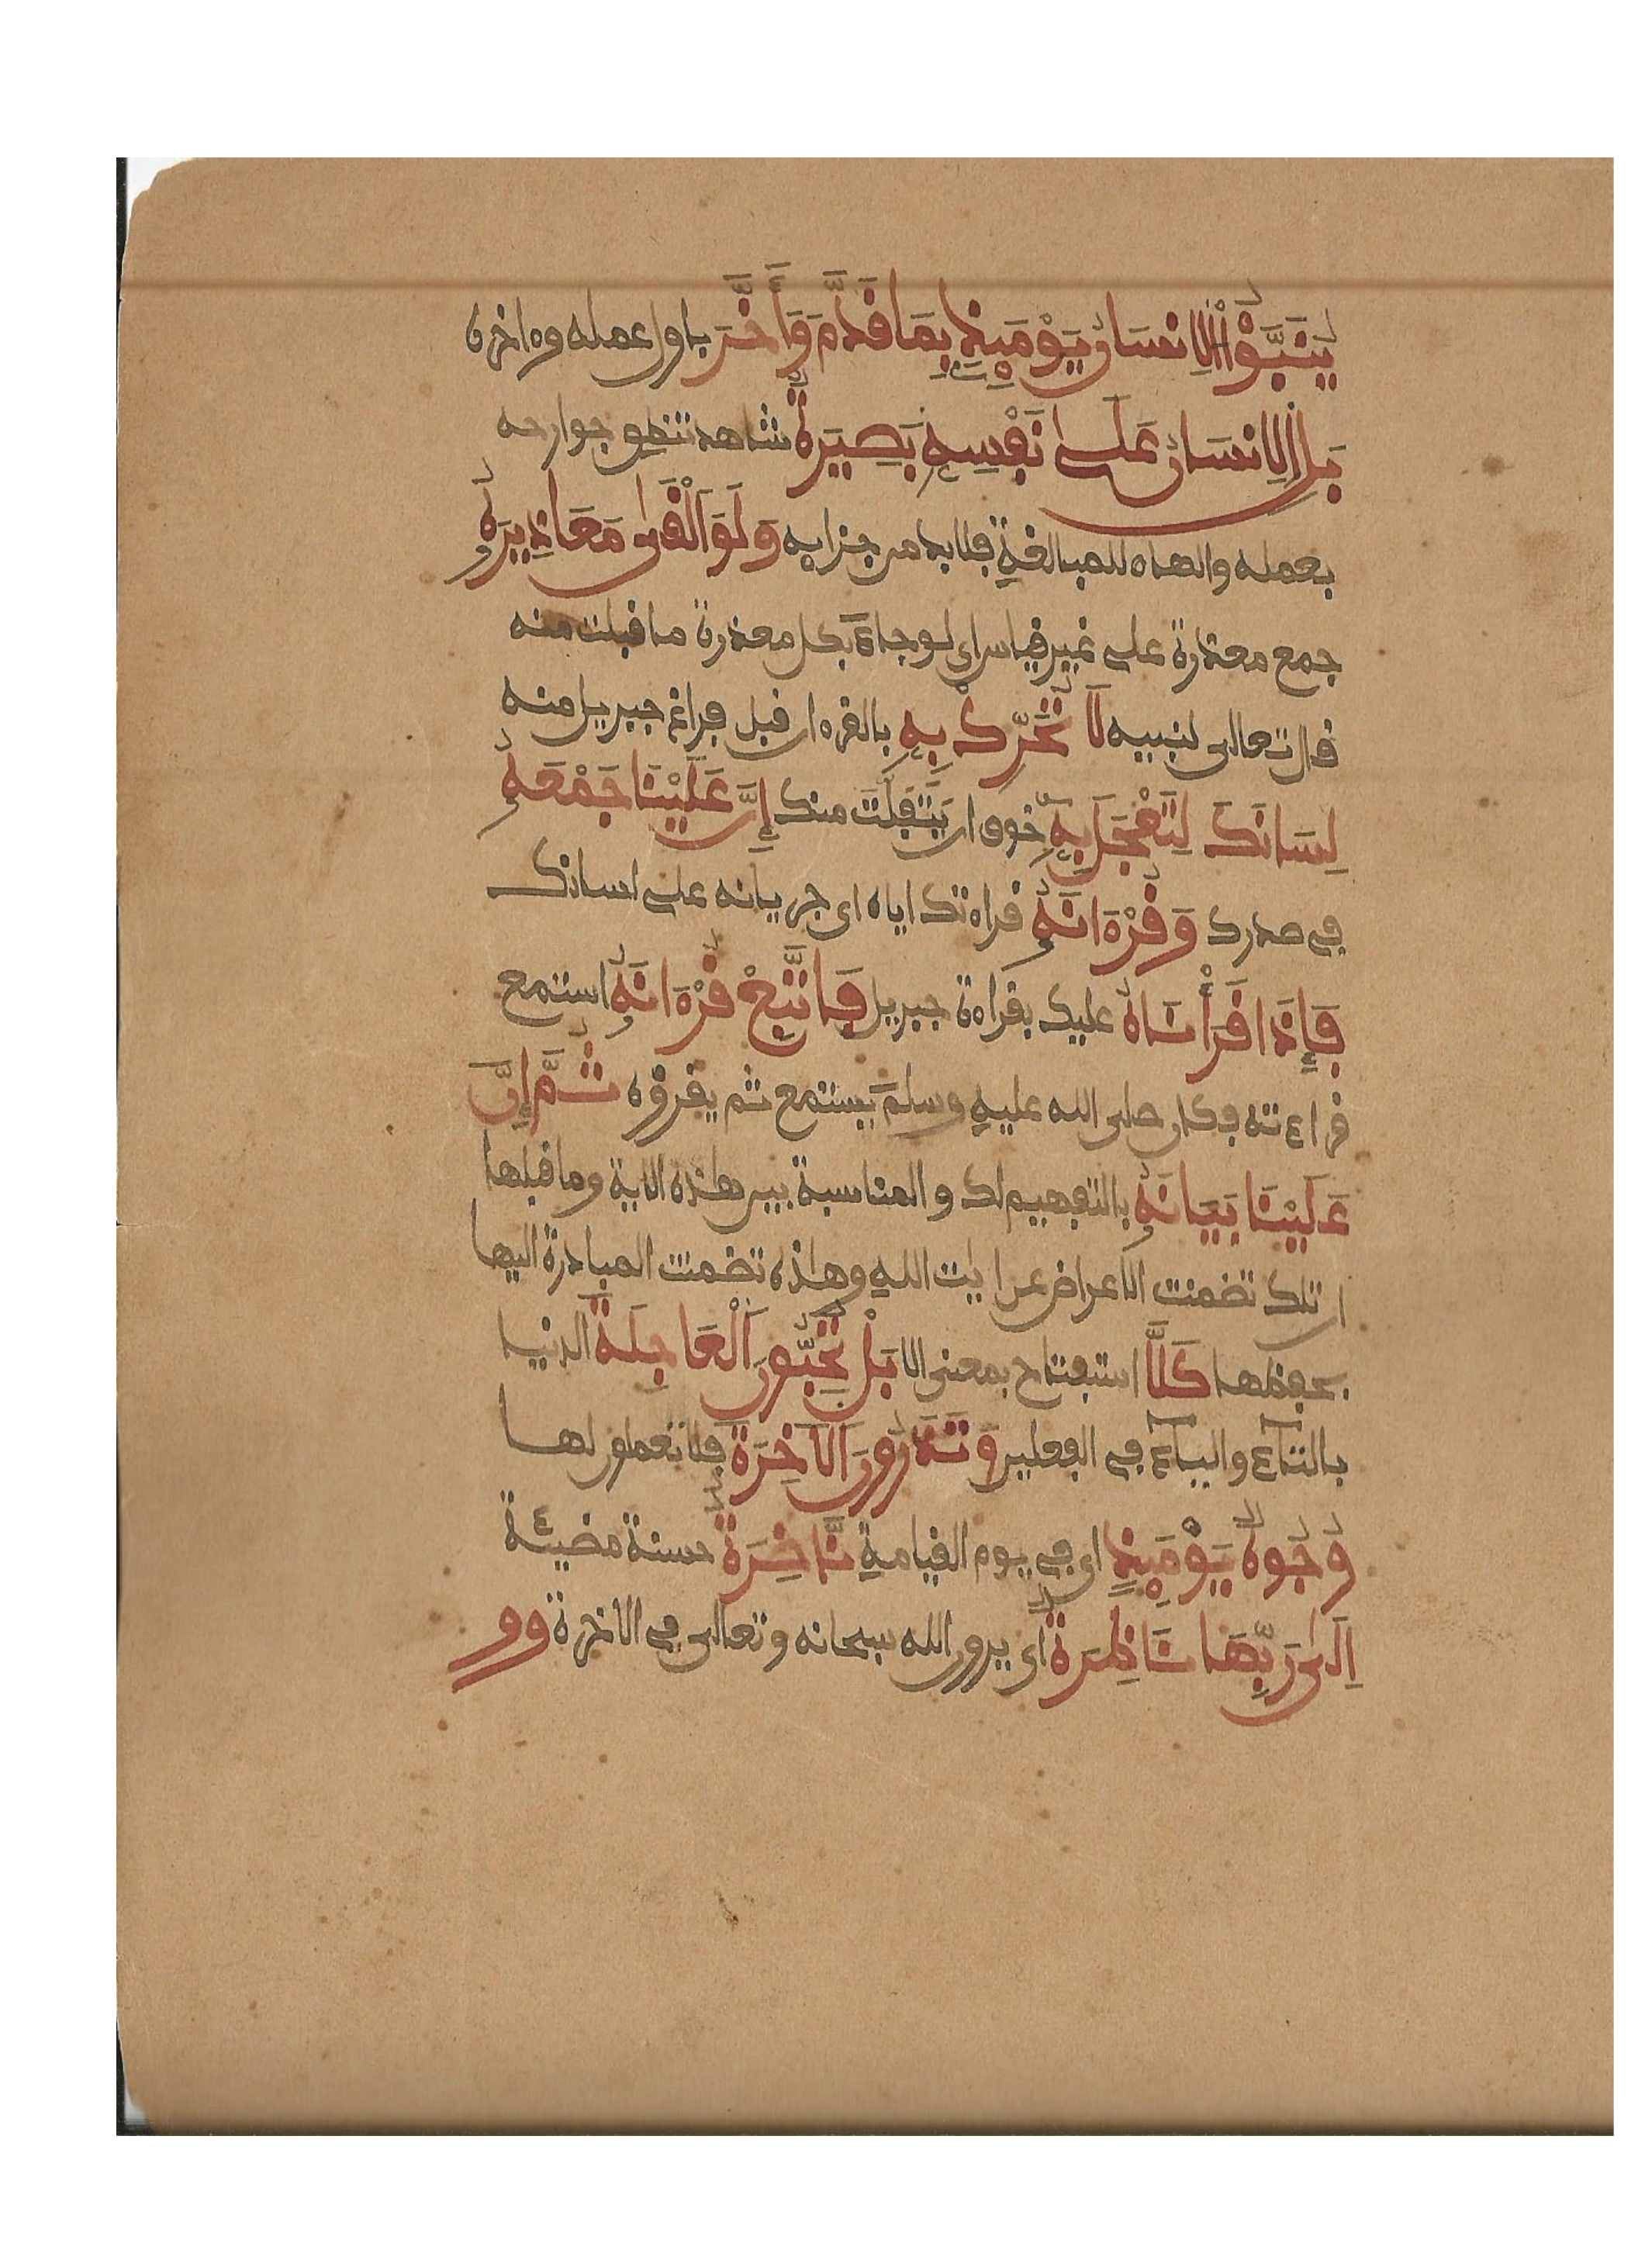 يُنَبَّؤُاْ الِانسَانُ يَوْمَئِذٍ بِمَا قَدَّمَ وَأَخَّرَ باول عمله وءاخره
بَلِ الِانسَانُ عَلَى نَفْسِهِ بَصِيرَةٌ شاهد تنطق جوارحه
بعمله والهاء للمبالغة فلابد من جزايه وَلَوَ اَلْقَى مَعَاذِيرَهُ
جمع معذرة على غير قياس اي لو جاء بكل معذرة ما قبلت منه
قال تعالى لنبيه لَا تُحَرِّكْ بِهِ بالقرءان قبل فراغ جبريل منه
لِسَانَكَ لِتَعْجَلَ بِهِ خوف ان يتفلت منك إِنَّ عَلَيْنَا جَمْعَهُ
في صدرك وَقُرْءَانَهُ قراءتك اياه اي جريانه على لسانك
فَإِذَا قَرَأْنَاهُ عليك بقراءة جبريل فَاتَّبِعْ قُرْءَانَهُ استمع
قراءته فكان صلى الله عليه وسلم يستمع ثم يقرؤه ثُمَّ إِنَّ
عَلَيْنَا بَيَانَهُ بالتفهيم لك والمناسبة بين هذه الاية وما قبلها
ان تلك تضمنت الاعراض عن ايت الله وهذه تضمنت المبادرة اليها
بحفظها كَلَّا استفتاح بمعنى الا بَلْ تُحِبُّونَ اَلْعَاجِلَةَ الدنيا
بالتاء والياء في الفعلين وَتَذَرُونَ اَلَاخِرَةَ فلا تعملون لها
وُجُوهٌ يَوْمَئِذٍ اي في يوم القيامة نَّاضِرَةٌ حسنة مضيئة
اِلَى رَبِّهَا نَاظِرَةٌ اي يرون الله سبحانه وتعالى في الاخرة وو